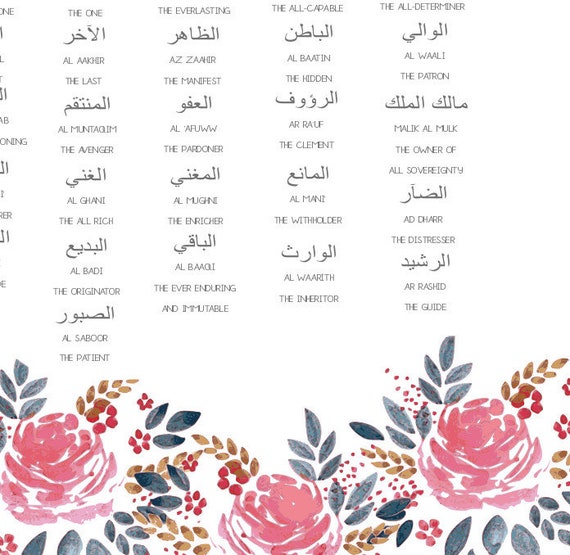 THE ONE
الآخر
AL AAKHIR
THE LAST
المنتقم
AL MUNTAQIM
THE AVENGER
الغني
AL GHANI
THE ALL RICH
البديع
AL BADI
THE ORIGINATOR
الصبور
AL SABOOR
THE PATIENT
THE EVERLASTING
الظاهر
AZ ZAAHIR
THE MANIFEST
العفو
AL 'AFUWW
THE PARDONER
المغني
AL MUGHNI
THE ENRICHER
الباقي
AL BAAQI
THE EVER ENDURING
AND IMMUTABLE
THE ALL-CAPABLE
الباطن
AL BAATIN
THE HIDDEN
الرؤوف
AR RA'UF
THE CLEMENT
المانع
AL MANI'
THE WITHHOLDER
الوارث
AL WAARITH
THE INHERITOR
THE ALL-DETERMINER
الوالي
AL WAALI
THE PATRON
مالك الملك
MALIK AL MULK
THE OWNER OF
ALL SOVEREIGNTY
الضآر
AD DHARR
THE DISTRESSER
الرشيد
AR RASHID
THE GUIDE